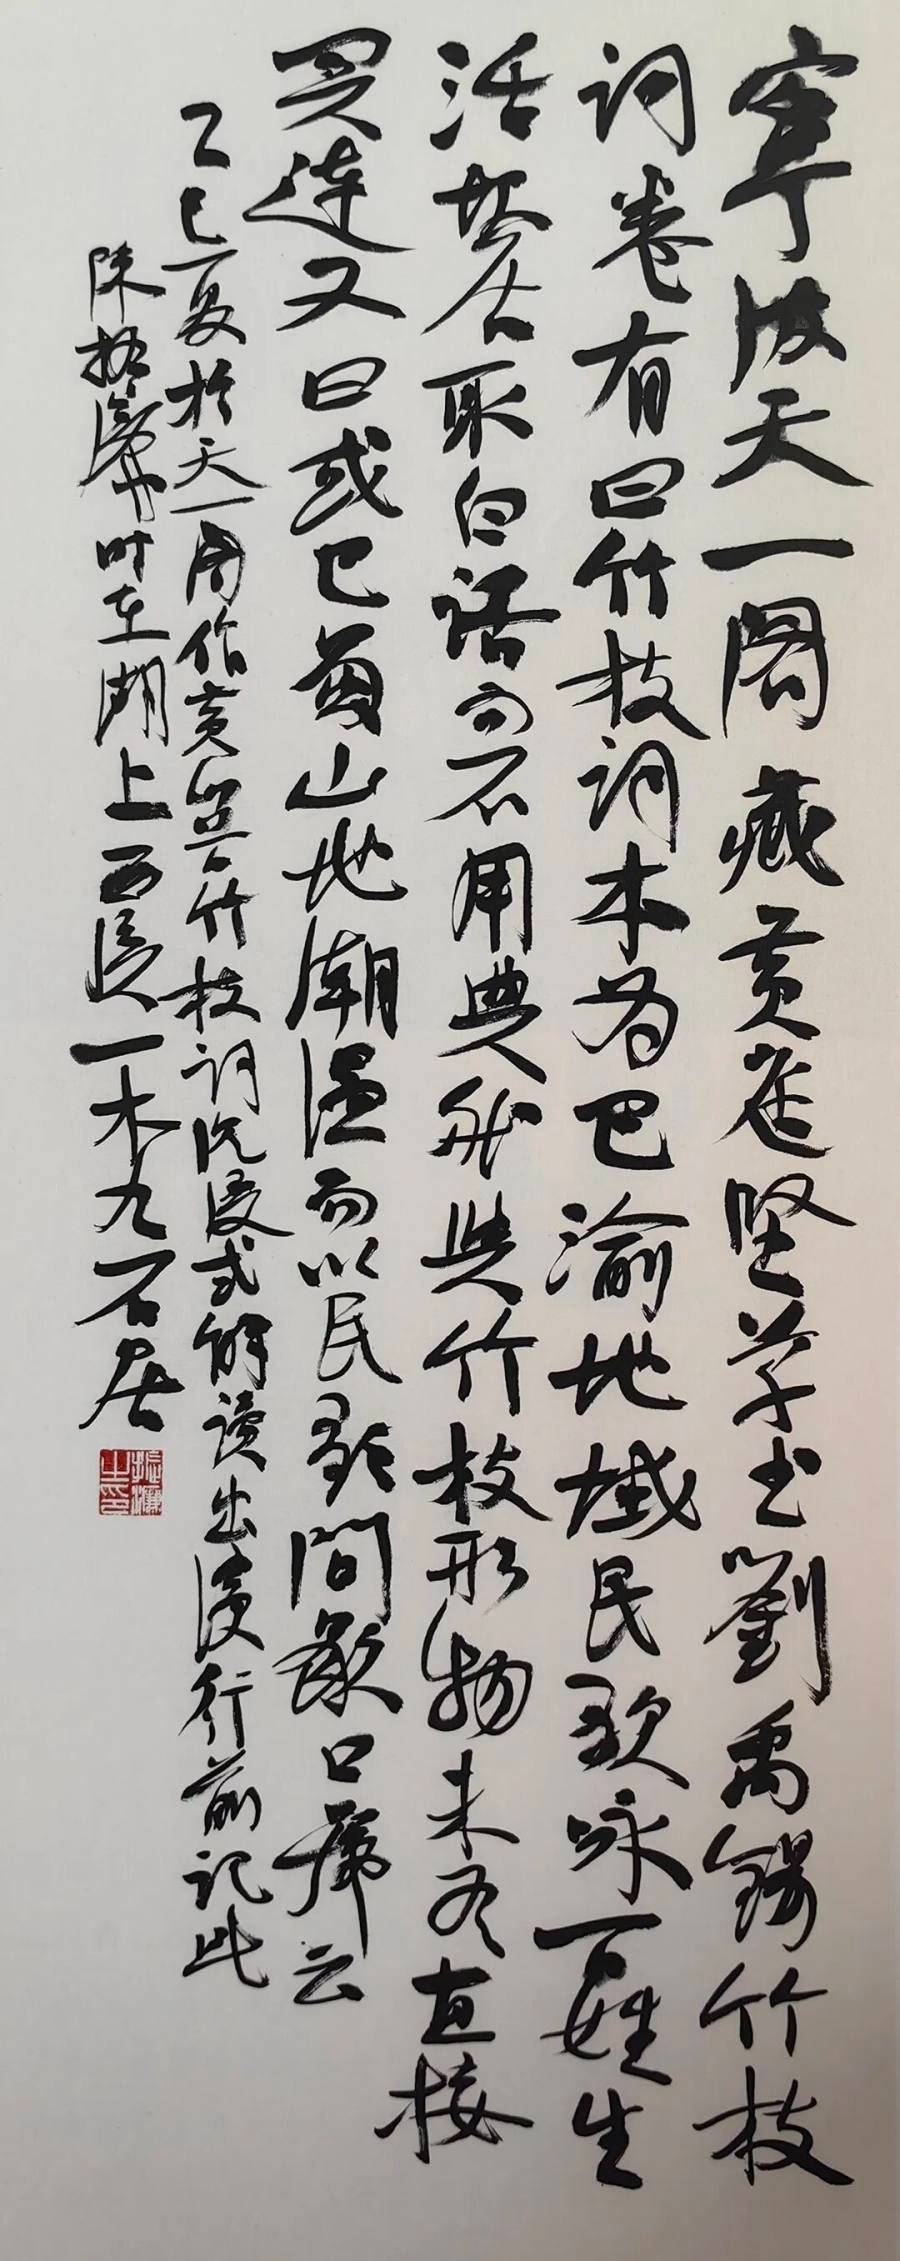 寧波天一阁藏黄庭坚草书劉禹锡竹枝
词卷有曰竹枝词本为巴渝地域民歌咏百姓生
活故君取白话而不用典然与竹枝形物未有直接
关连又曰或巴蜀山地潮湿而以民歌間歇口号云
乙巳夏於天一阁作黄庭坚竹枝词沉浸式解读出发行前记此
陈振濂书时在湖上西溪一木九石居
振濂之印